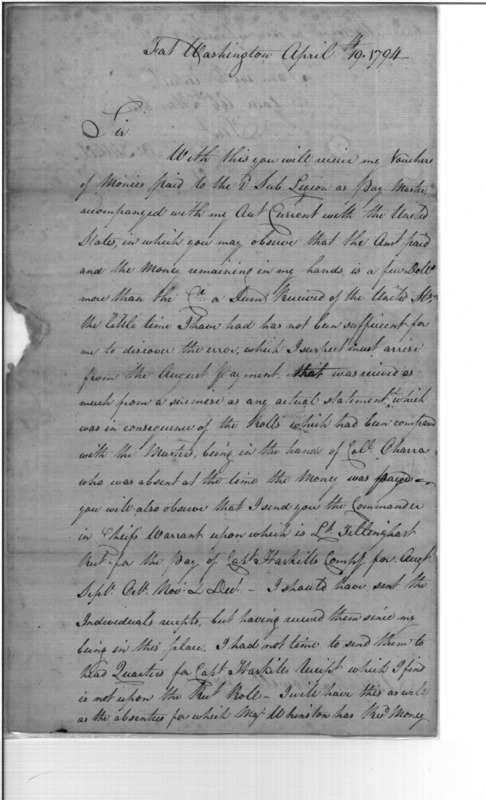 Fort Washington April 19th. 1794
Sir
With this you will receive me Vouchers
of Monies paid to the Sub Legion as Pay Master
accompanged with my Acct Current with the United
States, in which you may observe that the Amt paid
and the Money remaining in my hands, is a few Dolls
more than the a Received of the United Sts,
the little time I have had has not been sufficient for
me to discover the error, which I suspect must arrise
from the August payment. that was received as
much from a as any actual statement, which
was in consequence of the Rolls which had been compared
with the Musters, being in the hands of Charra
who was absent at the time the Money was payed
you will also observe that I send you the Commander
in Cheifs Warrant upon which is Lt. Tillinghast
Rect. for the Pay of Capt Haskells Compy for Augt
Sept. Octr. Novr. & Decr. — I should have sent the
Individuals recepts, but having recived them since my
being in this place. I had not time to send them to
Head Quarters for Capt Haskells Recept which I find
is not upon the Rect Roll — I will have this as well
as the absenties for which Majr Whinston has Recd Money